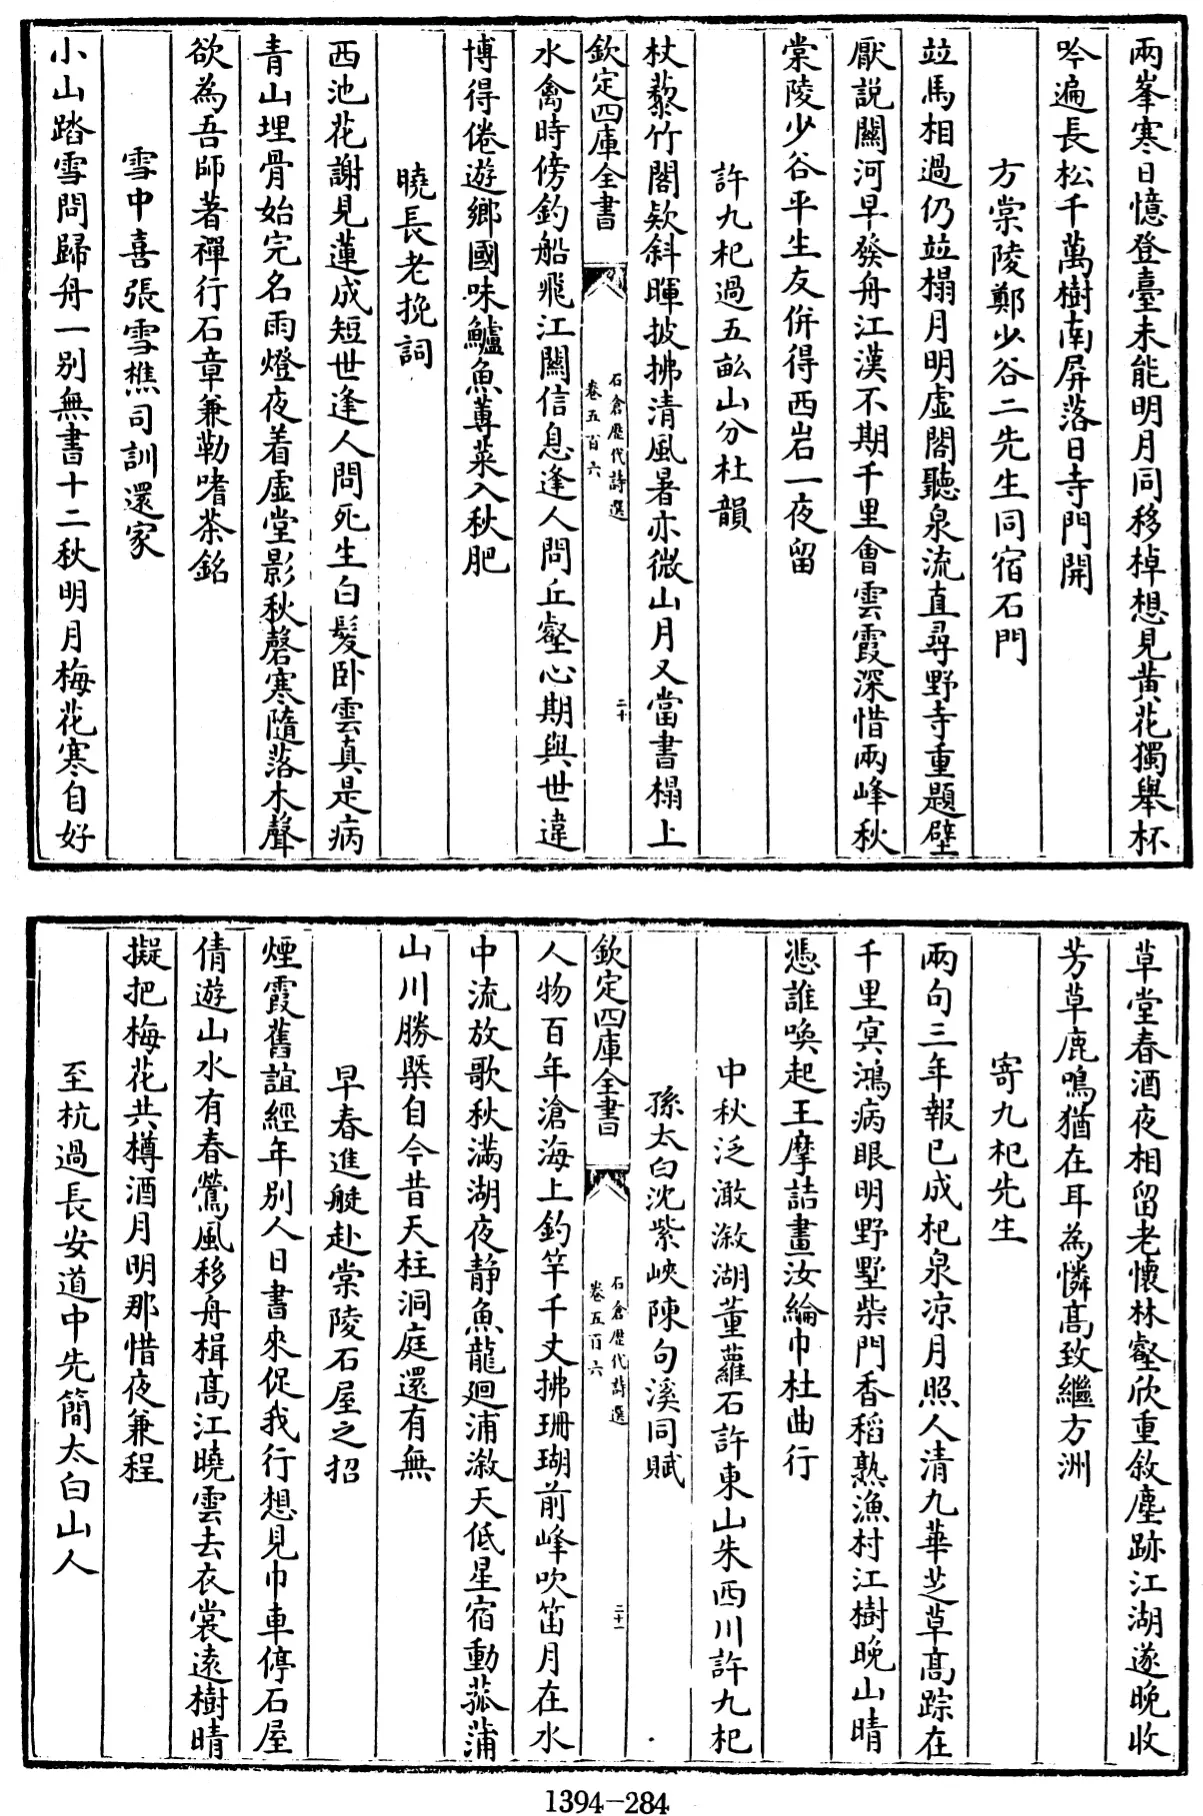 兩峯寒日憶登臺未能明月同移棹想見黄花獨舉杯
吟遍長松千萬樹南屏落日寺門開
方棠陵鄭少谷二先生同宿石門
竝馬相過仍竝榻月明虚閣聽泉流直尋野寺重題壁
厭説關河早發舟江漢不期千里會雲霞深惜兩峰秋
棠陵少谷平生友併得西岩一夜留
許九杞過五畝山分杜韻
杖藜竹閣欵斜暉披拂清風暑亦微山月又當書榻上
欽定四庫全書
石倉歴代詩選
卷五百六
二十
水禽時傍釣船飛江關信息逢人問丘壑心期與世違
博得倦遊鄉國味鱸魚蓴菜入秋肥
曉長老挽詞
西池花謝見蓮成短世逢人問死生白髮卧雲真是病
青山埋骨始完名雨燈夜着虚堂影秋磬寒隨落木聲
欲為吾師著禪行石章兼勒嗜茶銘
雪中喜張雪樵司訓還家
小山踏雪問歸舟一别無書十二秋明月梅花寒自好
草堂春酒夜相留老懷林壑欣重敘塵跡江湖遂晚收
芳草鹿鳴猶在耳為憐髙致繼方洲
寄九杞先生
兩句三年報已成杞泉凉月照人清九華芝草髙踪在
千里冥鴻病眼明野墅柴門香稻熟漁村江樹晚山晴
憑誰喚起王摩詰畫汝綸巾杜曲行
中秋泛澉溆湖董蘿石許東山朱西川許九杞
孫太白沈紫峽陳句溪同賦
欽定四庫全書
石倉歴代詩選
卷五百六
二十一
人物百年滄海上釣竿千丈拂珊瑚前峰吹笛月在水
中流放歌秋滿湖夜静魚龍廻浦溆天低星宿動菰蒲
山川勝槩自今昔天柱洞庭還有無
早春進艇赴棠陵石屋之招
煙霞舊誼經年别人日書來促我行想見巾車停石屋
倩遊山水有春鶯風移舟楫髙江曉雲去衣裳遠樹晴
擬把梅花共樽酒月明那惜夜兼程
至杭過長安道中先簡太白山人
1394-284